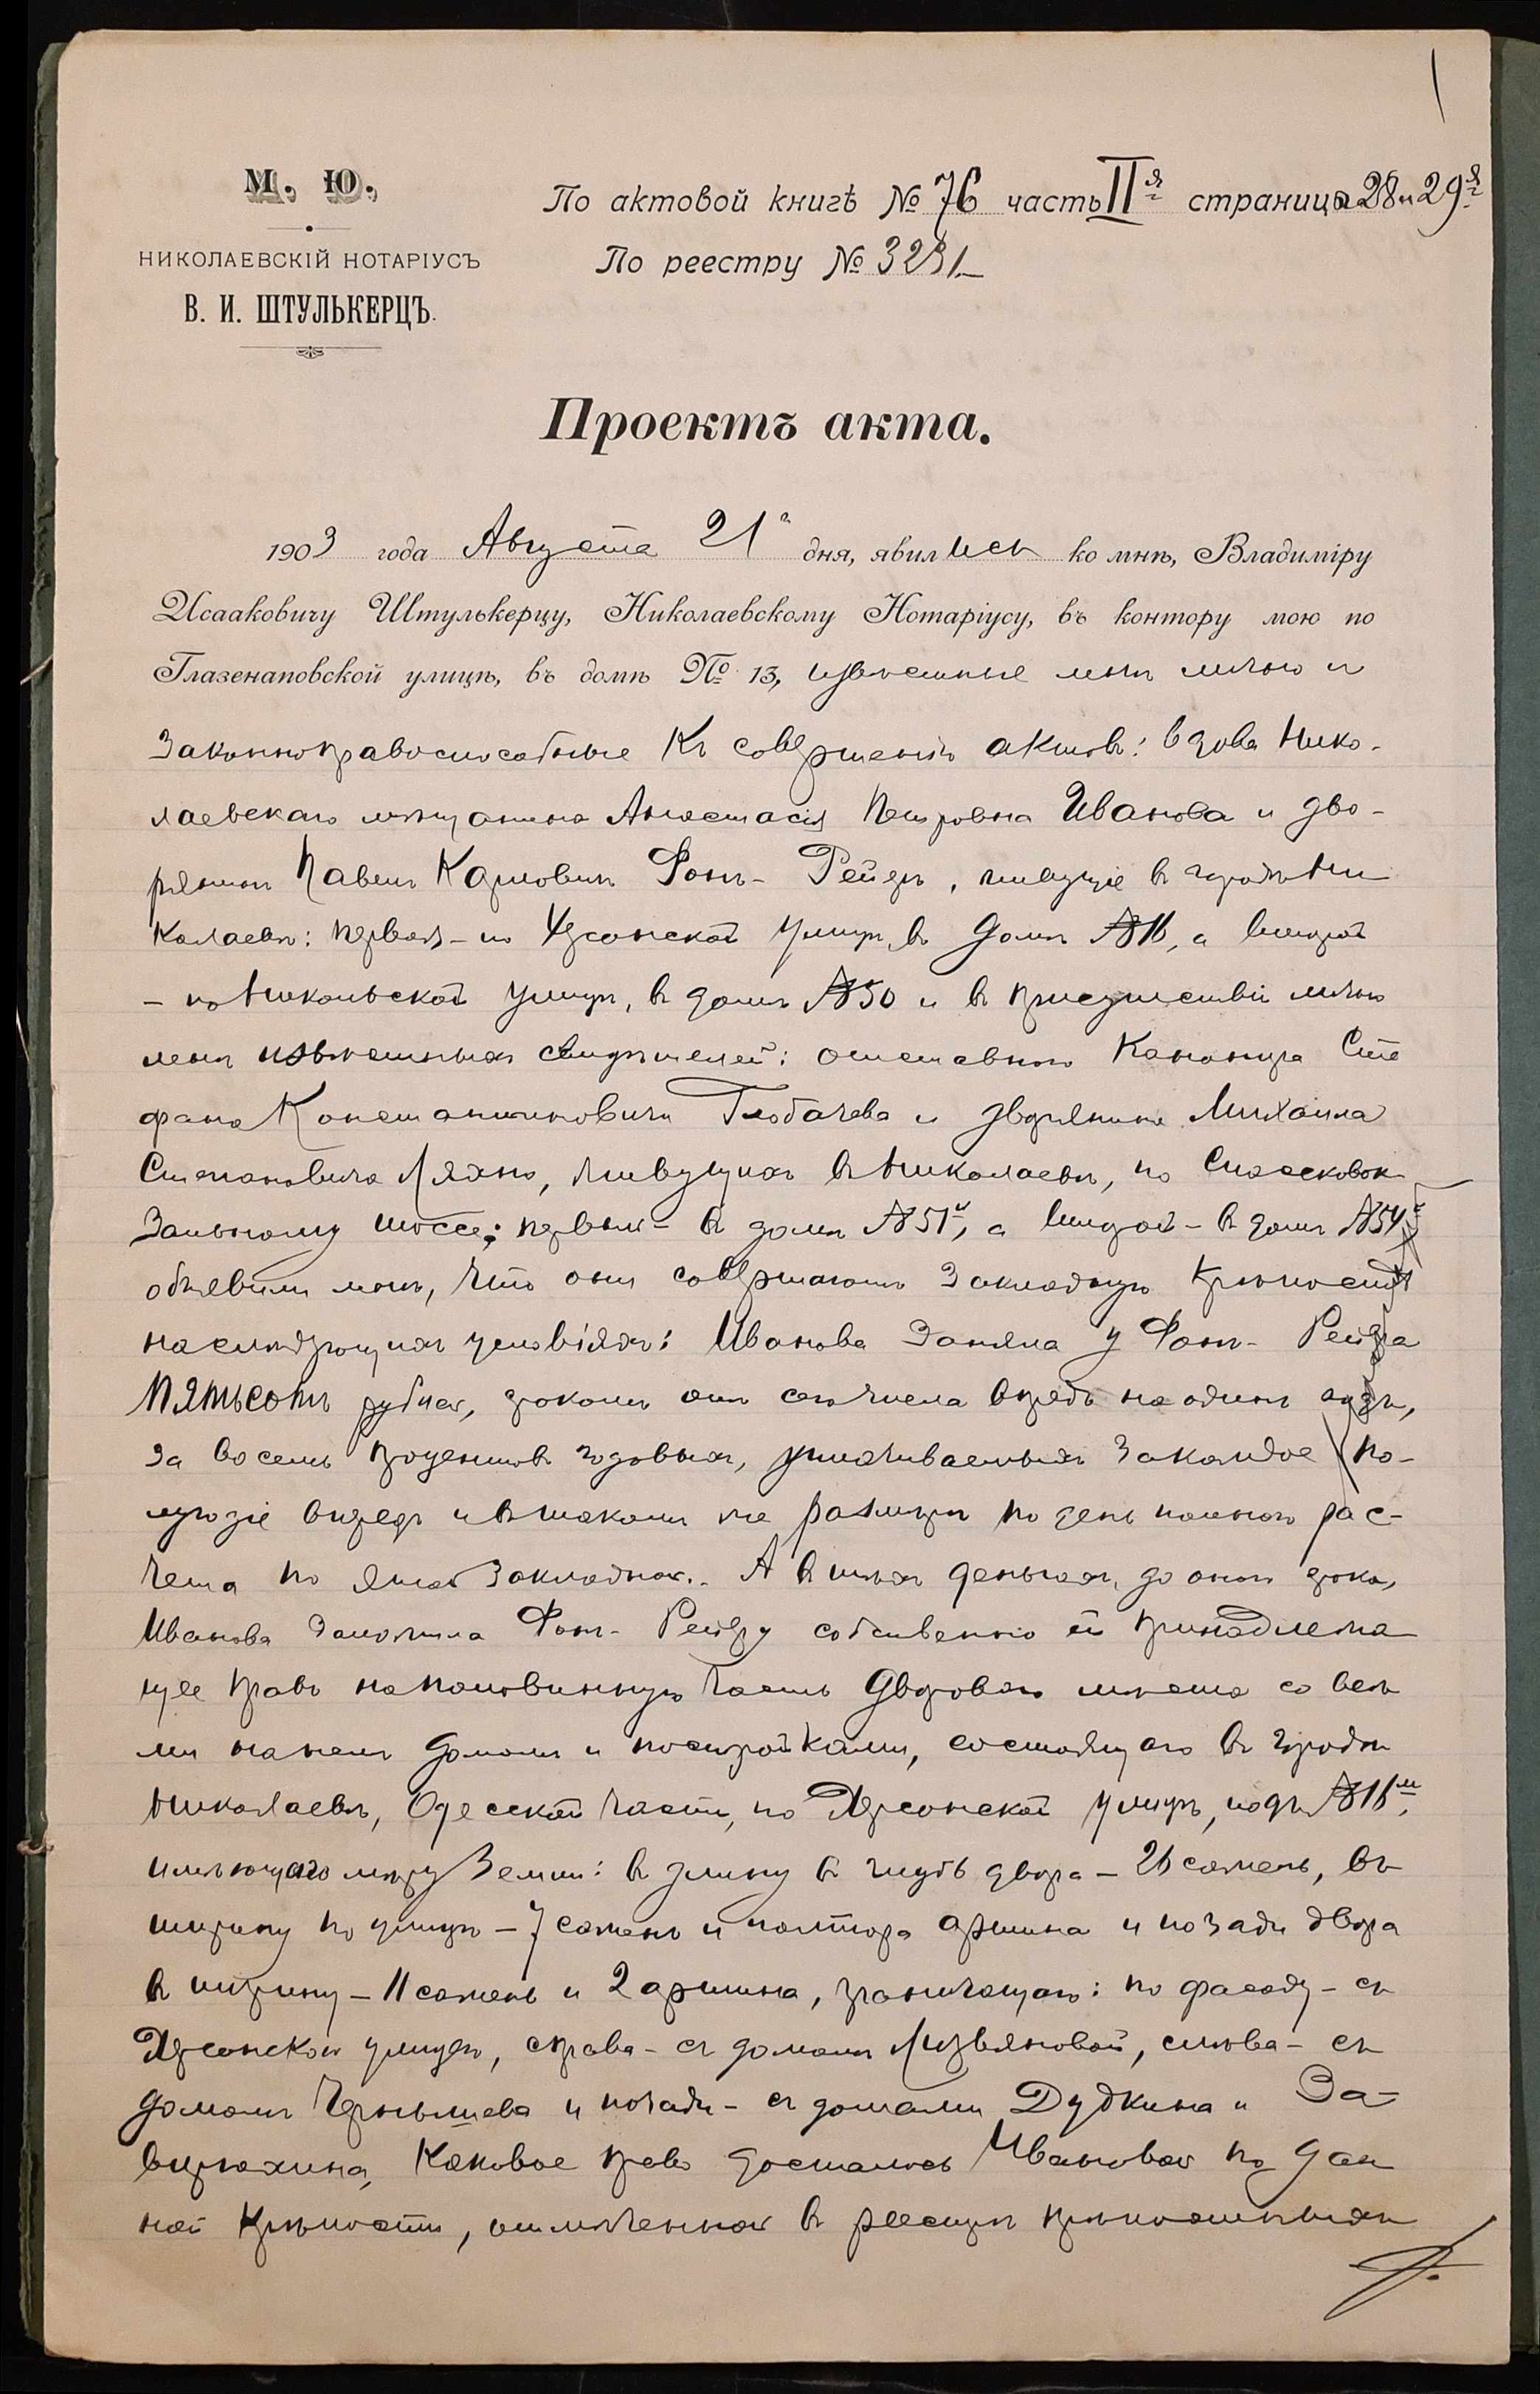 М. Ю.
НИКОЛАЕВСКІЙ НОТАРІУСЪ
В. И. ШТУЛЬКЕРЦЪ.
По актовой книгѣ № 76 часть II я страницы 28 и 29 я
По реестру № 3231
Проектъ акта.
1903 года Августа 21 дня, явились ко мнѣ, Владиміру
Исааковичу Штулькерцу, Николаевскому Нотаріусу, въ контору мою по
Глазенаповской улицѣ, въ домѣ № 13, извѣстные мнѣ лично и
законноправоспособные къ совершенію актовъ: вдова Нико-
лаевскаго мѣщанина Анастасія Петровна Иванова и дво-
рянинъ Павелъ Карловичъ Фонъ-Рейеръ, живущіе въ городѣ Ни
колаевѣ: первая - по Херсонской улицѣ, въ домѣ № 16, а второй
- по Никольской улицѣ, въ домѣ № 50 и въ присутствіи лично
мнѣ извѣстныхъ свидѣтелей: отставного канонира Сте
фана Константиновича Глобачева и дворянина Михаила
Степановича Ляхно, живущихъ въ Николаевѣ, по Спассковок
зальному шоссе; первый - въ домѣ № 51, а второй - въ домѣ № 54,
объявили мнѣ, что они совершаютъ закладную крѣпость
на слѣдующихъ условіяхъ: Иванова заняла у Фонъ-Рейера
пятьсотъ рублей, срокомъ отъ сего числа впредь на одинъ годъ,
за восемь процентовъ годовыхъ, уплачиваемыхъ за каждое по-
лугодіе впередъ и въ такомъ же размѣрѣ по день полнаго рас-
чета по этой закладной. А въ тѣхъ деньгахъ, до онаго срока,
Иванова заложила Фонъ-Рейеру собственно ей принадлежа
щее право на половинную часть двороваго мѣста со всѣ
ми на немъ домомъ и постройками, состоящаго въ городѣ
Николаевѣ, Одесской части, по Херсонской улицѣ, подъ № 16 м,
имѣющаго мѣру земли: въ длину въ глубь двора - 26 сажень, въ
ширину по улицѣ - 7 сажень и полтора аршина и позади двора
въ ширину - 11 сажень и 2 аршина, граничащаго: по фасаду - съ
Херсонской улицею, справа - съ домомъ Лизьяновой, слѣва - съ
домомъ Чернышева и позади - съ домами Дудкина и За-
вирюхина, каковое право досталось Ивановой по дан
ной крѣпости, отмѣченной въ реестрѣ крѣпостныхъ